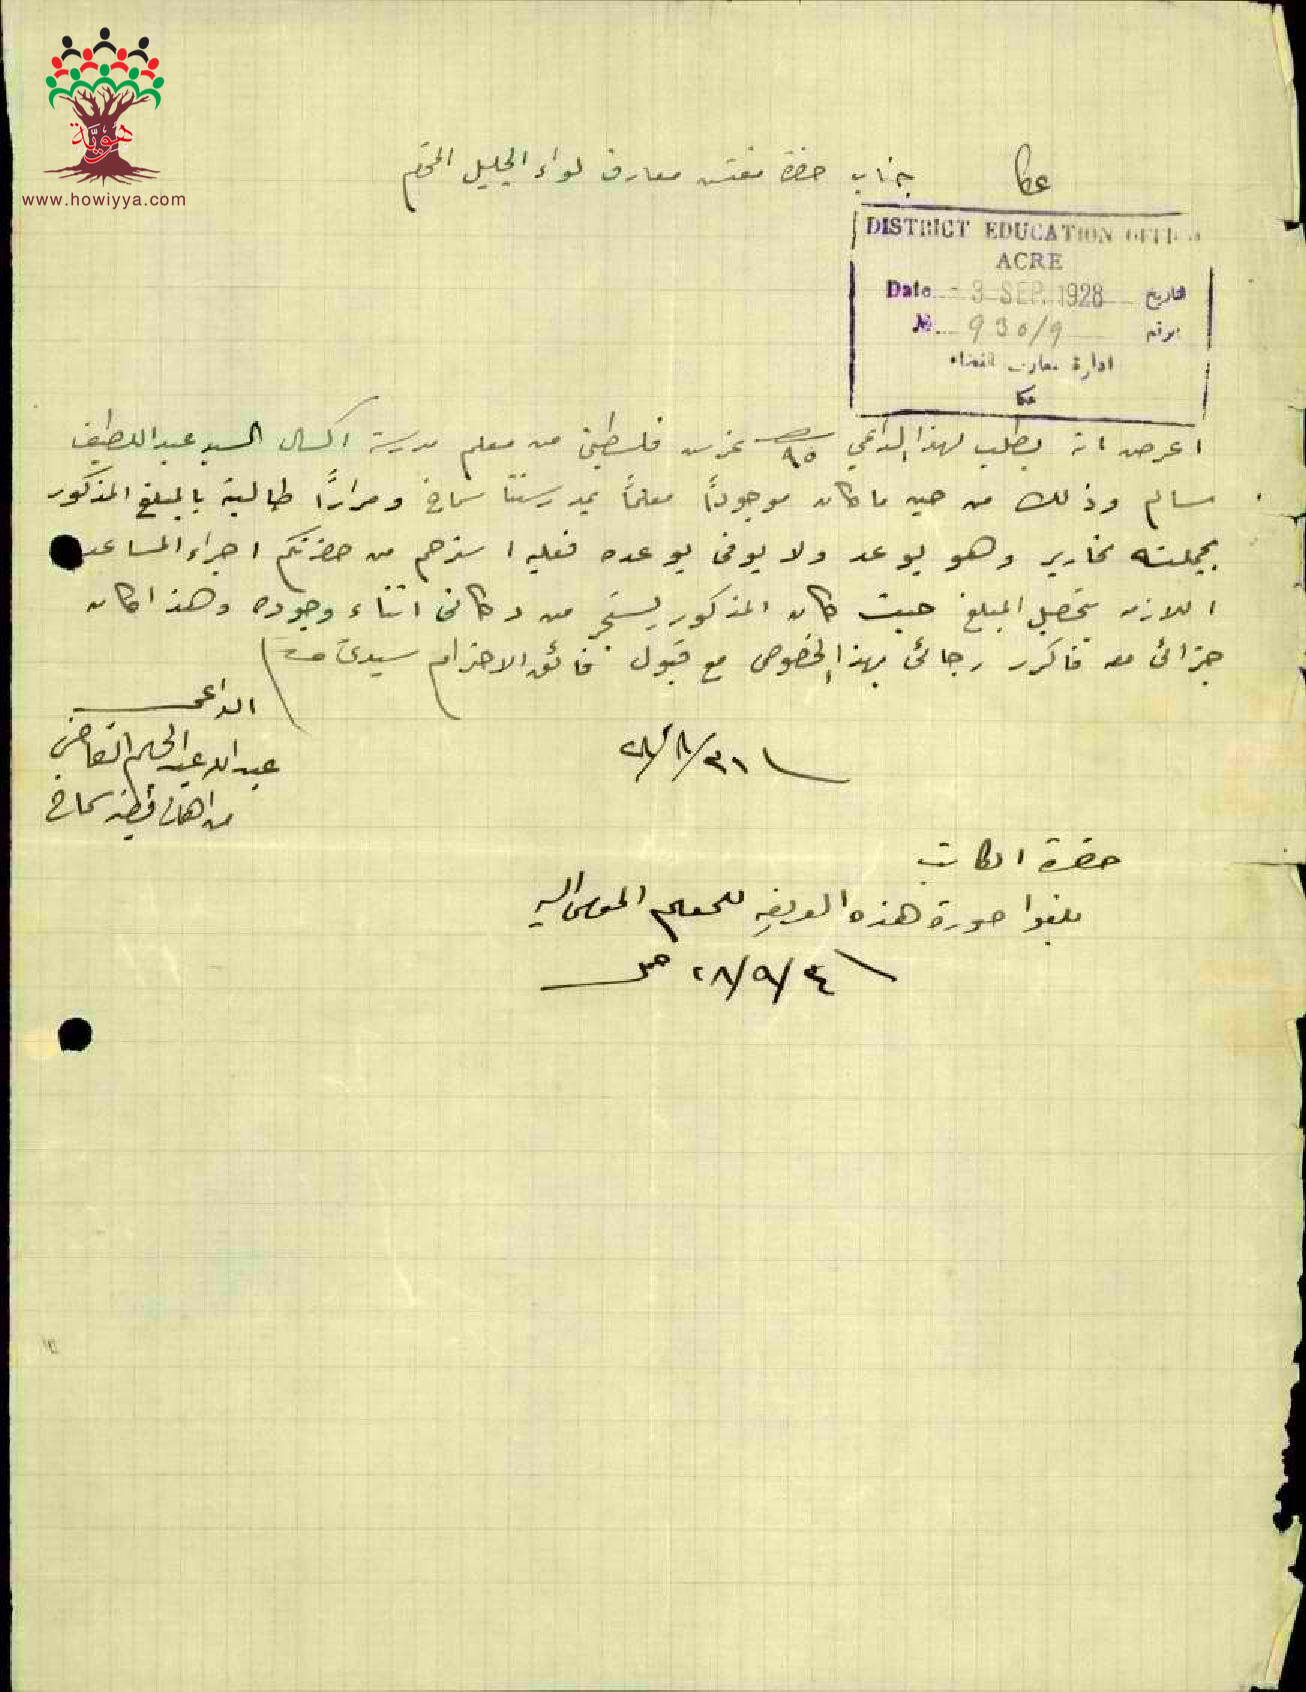 هوية
www.howiyya.com
عكا
جناب حضرة مفتش معارف لواء الجليل المحترم
DISTRICT EDUCATION OFFICE
ACRE
Date 3 SEP. 1928 التاريخ
№ 930/9 نمرة
ادارة معارف قضاء
عكا
اعرض انه يطلب لهذا الداعي ٩٥ غرش فلسطيني من معلم مدرسة اكسال السيد عبد اللطيف
سالم وذلك من حين ما كان موجودًا معلمًا بمدرستنا سمخ ومرارًا طالبته بالمبلغ المذكور
بجملة تحارير وهو يوعد ولا يوفي بوعده فعليه استرحم من حضرتكم اجراء المساعدة
اللازمة بتحصيل المبلغ حيث كان المذكور من دكاني اثناء وجوده وهذا كان
جزائي منه فاكرر رجائي بهذا الخصوص مع قبول فائق الاحترام سيدي
الداعي
٢٨/٨/٣١
عبد الله عبد الحليم القاضي
من اهالي سمخ
حضرة الكاتب
بلغوا صورة هذه العريضة للمعلم المومى اليه
٢٨/٩/٤